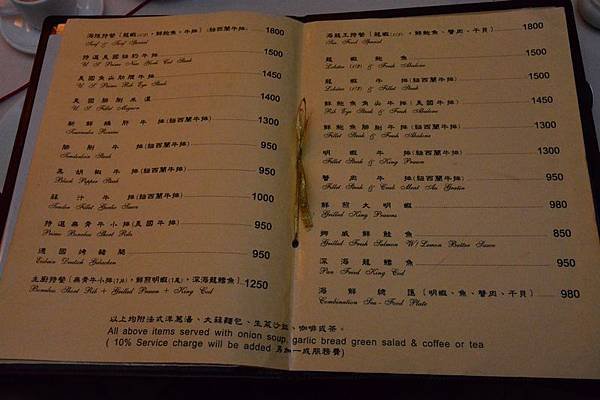 海陸特餐〔龍蝦(1/2)，鮮鮑魚，牛排〕(紐西蘭牛排) 1800
Surf & Turf Special
特選美國紐約牛排 1500
U. S. Prime New York Cut Steak
美國魚山肋眼牛排 1450
U. S. Prime Rib Eye Steak
美國腓脷米濃 1400
U. S. Fillet Mignon
新鮮鵝肝牛排(紐西蘭牛排) 1300
Tournedos Rossini
腓脷牛排(紐西蘭牛排) 950
Tenderloin Steak
黑胡椒牛排(紐西蘭牛排) 950
Black Pepper Steak
蒜汁牛排(紐西蘭牛排) 1000
Tender Fillet Garlic Sauce
特選無骨牛小排(美國牛排) 950
Prime Boneless Short Ribs
德國烤豬腳 950
Eisbein Deutsch Gebacken
主廚特餐〔無骨牛小排(1片)，鮮煎明蝦(1隻)，深海龍鱈魚〕 1250
Boneless Short Rib + Grilled Prawn + King Cod
海龍王特餐〔龍蝦(1/2)，鮮鮑魚、蟹肉、干貝〕 1800
Sea Food Special
龍蝦鮑魚 1500
Lobster (1/2) & Fresh Abalone
龍蝦牛排(紐西蘭牛排) 1500
Lobster (1/2) & Fillet Steak
鮮鮑魚魚山牛排(美國牛排) 1450
Rib Eye Steak & Fresh Abalone
鮮鮑魚腓脷牛排(紐西蘭牛排) 1300
Fillet Steak & Fresh Abalone
明蝦牛排(紐西蘭牛排) 1300
Fillet Steak & King Prawn
蟹肉牛排(紐西蘭牛排) 950
Fillet Steak & Crab Meat Au Gratin
鮮煎大明蝦 980
Grilled King Prawns
挪威鮮鮭魚 850
Grilled Fresh Salmon W/ Lemon Butter Sauce
深海龍鱈魚 950
Pan Fried King Cod
海鮮總匯〔明蝦、魚、蟹肉、干貝〕 980
Combination Sea-Food Plate
以上均附法式洋蔥湯、大蒜麵包、生菜沙拉、咖啡或茶。
All above items served with onion soup, garlic bread green salad & coffee or tea
( 10% Service charge will be added 另加一成服務費)